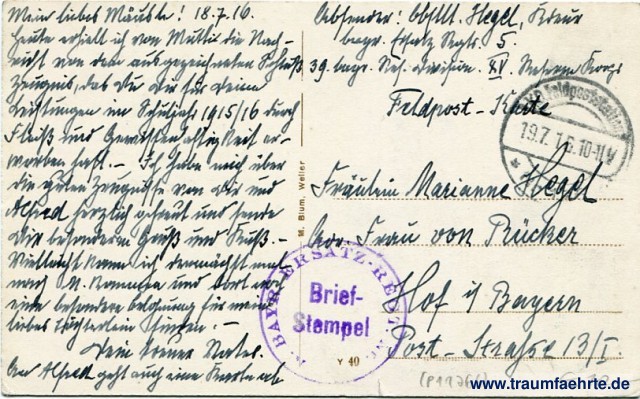 Mein liebes Mäusle! 18.7.16.
Heute erhielt ich von Mutti die Nach-
richt von dem ausgezeichneten Schluß
Zeugnis, das Du Dir für Deine
Leistungen im Schuljahr 1915/16 durch
Fleiß und Gewissenhaftigkeit er-
worben hast. - Ich habe mich über
die guten Zeugnisse von Dir und
Alfred herzlich gefreut und sende
Dir besonderen Gruß und Kuß. -
Vielleicht kann ich demnächst mal
nach und dort
eine besondere Belohnung für mein
liebes Töchterlein -
Dein treuer Vater.
An Alfred geht auch eine Karte ab
Absender: Obstlt. Hegel, Kdeur
bayr. Ersatz Regts. 5.
39. bayr. Res. Division XV. Reserve Korps
Feldpost-Karte
19.7. 10-11V
Fräulein Marianne Hegel
Adr. Frau von Rücker
Hof i/Bayern
Post-Straße 13/I.
M. Blum, Weiler
BAYR. ERSATZ-REGT.
Brief-
Stempel
Y 40
www.traumfaehrte.de